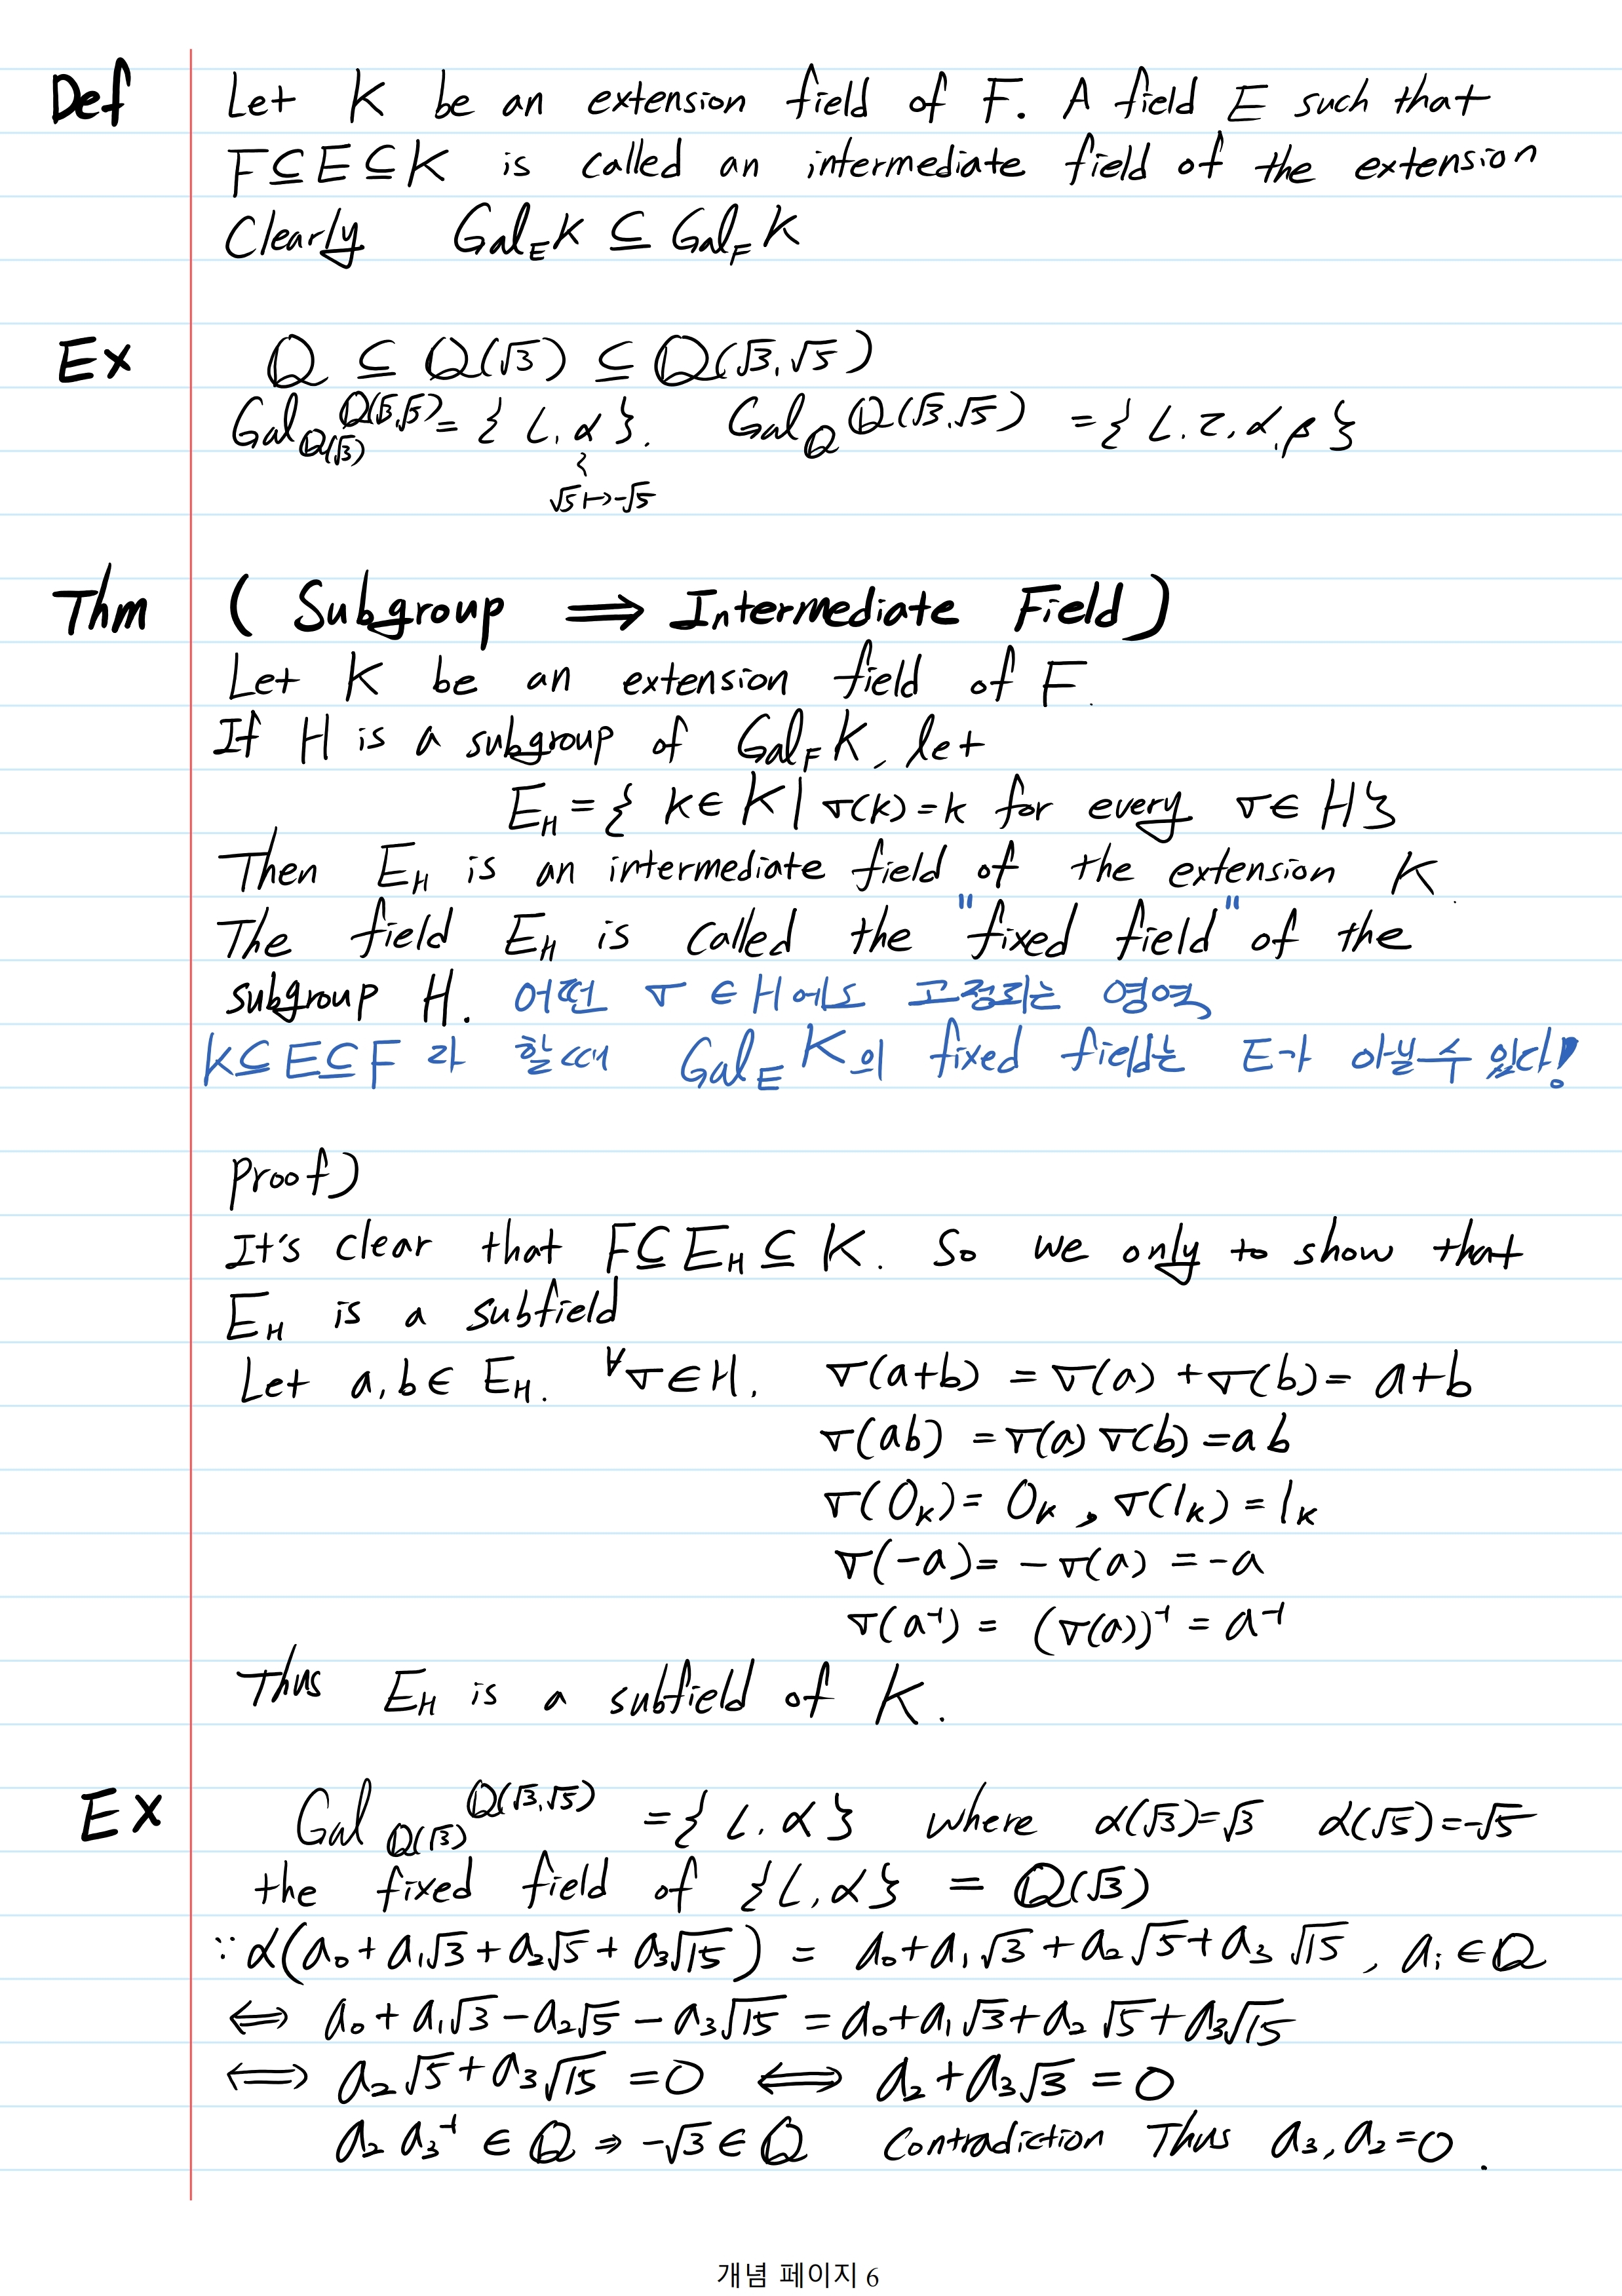 Def Let K be an extension field of F. A field E such that
F⊆E⊆K is called an intermediate field of the extension
Clearly Gal_E K ⊆ Gal_F K
Ex Q ⊆ Q(√3) ⊆ Q(√3,√5)
Gal_Q(√3) Q(√3,√5) = { ι, α }. Gal_Q Q(√3,√5) = { ι, τ, α, β }
√5 ↦ -√5
Thm ( Subgroup ⟹ Intermediate Field )
Let K be an extension field of F.
If H is a subgroup of Gal_F K, let
E_H = { k ∈ K | σ(k) = k for every σ ∈ H }
Then E_H is an intermediate field of the extension K.
The field E_H is called the "fixed field" of the
subgroup H. 어떤 σ ∈ H에도 고정되는 영역
K⊆E⊆F 라 할때 Gal_E K의 fixed field는 E가 아닐수 있다!
proof)
It's clear that F⊆E_H⊆K. So we only to show that
E_H is a subfield
Let a,b ∈ E_H. ∀σ∈H, σ(a+b) = σ(a)+σ(b) = a+b
σ(ab) = σ(a)σ(b) = ab
σ(0_K) = 0_K, σ(1_K) = 1_K
σ(-a) = -σ(a) = -a
σ(a⁻¹) = (σ(a))⁻¹ = a⁻¹
Thus E_H is a subfield of K.
Ex Gal_Q(√3) Q(√3,√5) = { ι, α } where α(√3)=√3 α(√5)=-√5
the fixed field of { ι, α } = Q(√3)
∵ α(a₀+a₁√3+a₂√5+a₃√15) = a₀+a₁√3+a₂√5+a₃√15, aᵢ ∈ Q
⟺ a₀+a₁√3-a₂√5-a₃√15 = a₀+a₁√3+a₂√5+a₃√15
⟺ a₂√5+a₃√15 = 0 ⟺ a₂+a₃√3 = 0
a₂a₃⁻¹ ∈ Q ⇒ -√3 ∈ Q contradiction Thus a₃,a₂=0.
개념 페이지 6